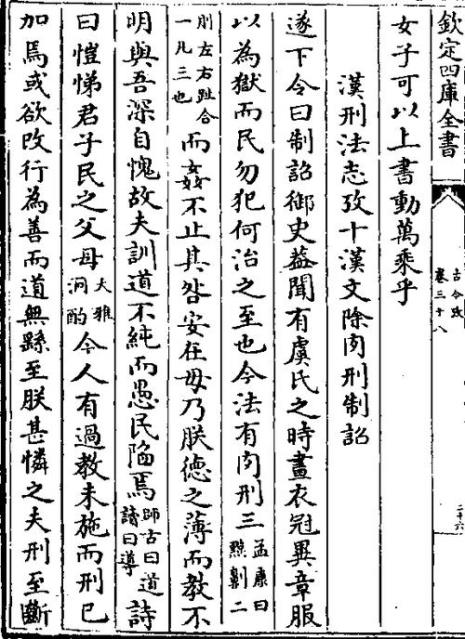 欽定四庫全書
古今攷
卷三十八
二十六
女子可以上書動萬乘乎
漢刑法志攷十漢文除肉刑制詔
遂下令曰制詔御史葢聞有虞氏之時畫衣冠異章服
以為獄而民勿犯何治之至也今法有肉刑三孟康曰黥劓二
刖左右趾合一凡三也而姦不止其咎安在毋乃朕德之薄而教不
明與吾深自愧故夫訓道不純而愚民陷焉師古曰道讀曰導詩
曰愷悌君子民之父母大雅泂酌今人有過教未施而刑已
加焉或欲改行為善而道無繇至朕甚憐之夫刑至斷